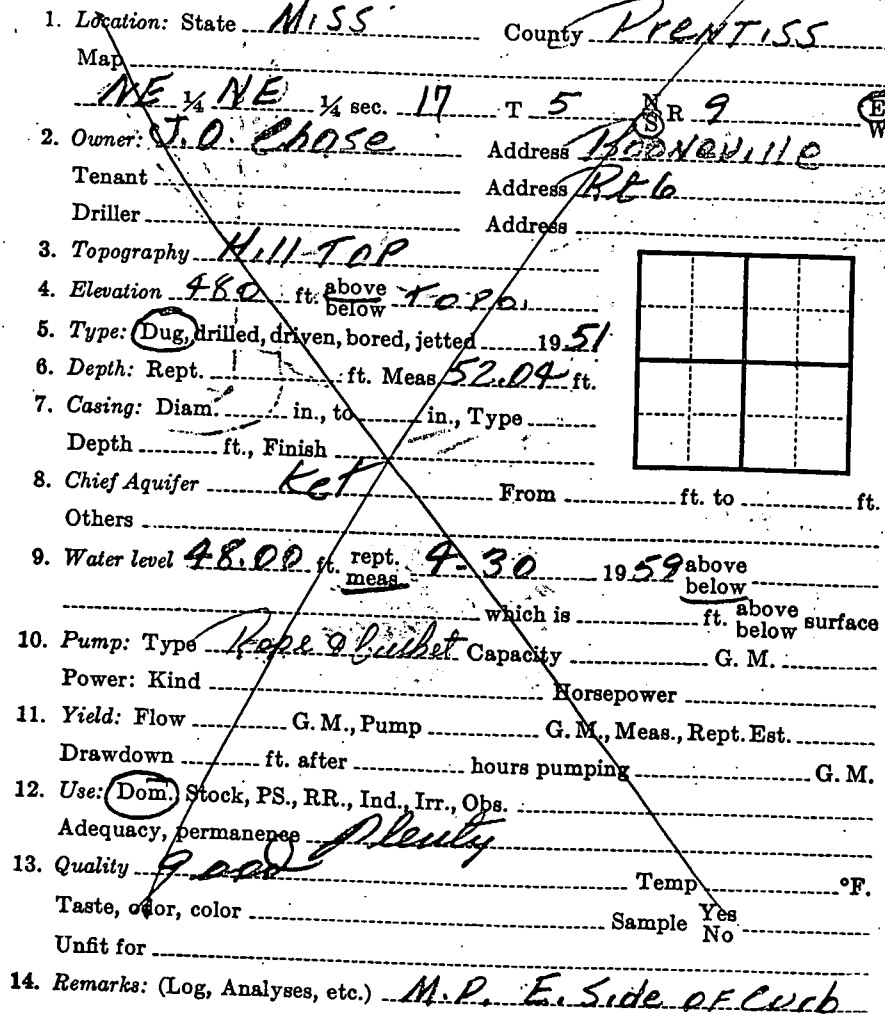 1. Location: State Miss County Prentiss
Map
NE ¼ NE ¼ sec. 17 T 5 N S R 9 E W
2. Owner: J.O. Chase Address Booneville
Tenant Address Rt 6
Driller Address
3. Topography Hill Top
4. Elevation 480 ft. above below Topo.
5. Type: Dug, drilled, driven, bored, jetted 1951
6. Depth: Rept. ft. Meas 52.04 ft.
7. Casing: Diam. in., to in., Type
Depth ft., Finish
8. Chief Aquifer Ket From ft. to ft.
Others
9. Water level 48.00 ft. rept. meas. 4-30 1959 above below
which is ft. above below surface
10. Pump: Type Rope & bucket Capacity G. M.
Power: Kind Horsepower
11. Yield: Flow G. M., Pump G. M., Meas., Rept. Est.
Drawdown ft. after hours pumping G. M.
12. Use: Dom. Stock, PS., RR., Ind., Irr., Obs.
Adequacy, permanence Plenty
13. Quality good Temp °F.
Taste, odor, color Sample Yes No
Unfit for
14. Remarks: (Log, Analyses, etc.) M.P. E. Side of Curb